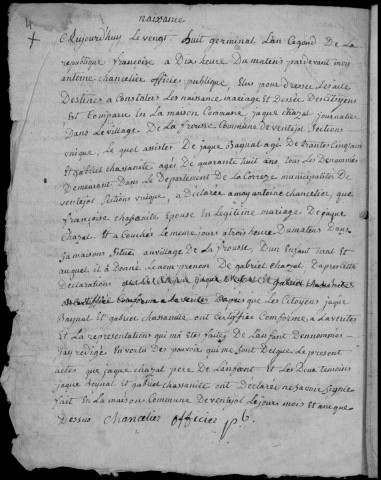 naissance
Aujourdhuy Le vengt huit germinal Lan Cegond De La
republique francoise a Dix heure Du maten par devant moy
antoine chancelier officier publique, Elus pour Dresser Les acte
Destiner a Constater Les naissance mariage et Dessée Des Citoyens
Est Comparu En La maison Commune jaque chazal journalier
Dans Le village De La frousse Commune de ventejol Sections
unique, Le quel assister De jaque Baynal agé De trante Cinq ans
Et gabriel chassanite agés De quarante huit ans, tous Les Denommés
Demeurant Dans Le Departement De La Correze municipalités De
ventejol Sections unique, a Déclarée a moy antoine chancelier, que
françoise chassanite Epouse En Legitime mariage De jaque
chazal Et a Couchés Le meme jour a trois heure Du maten Dans
Ja maisons Situé au village De La frousse, Dun Enfant mal Et
auquel il à Donné Le nom prenon De gabriel chazal Daprés Cette
Declarations que Les Citoyens jaque Baynal Et gabriel chassanite
ont Certiffiée Comforme a La verites Daprés que Les Citoyens jaque
Baynal Et gabriel chassanite ont Certiffiée Comforme à La verites
Et La representation qui ma Etés faites De Lanfant Denommés
Jay redigé En vertu Des pouvoir qui me sont Delegue Le present
actes que jaque chazal pere De Lanfant Et Les Deux temoins
jaque Baynal et gabriel chassanite ont Declarée ne savoir Signée
fait En La maison Commune De ventejol Le jours mois Et an que
Dessus Chancelier officier pb.